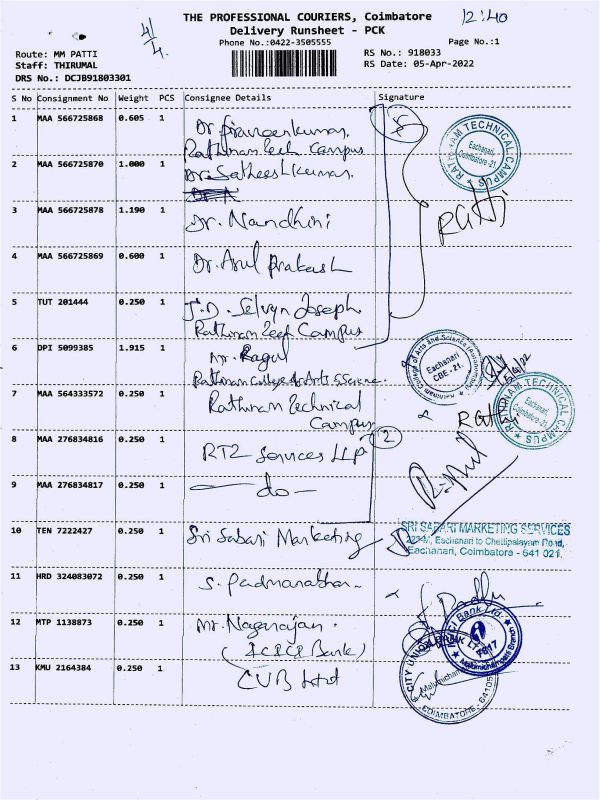 THE PROFESSIONAL COURIERS, Coimbatore
12:40
Delivery Runsheet - PCK
4/4
Phone No.:0422-3505555
Page No.:1
Route: MM PATTI
RS No.: 918033
Staff: THIRUMAL
RS Date: 05-Apr-2022
DRS No.: DCJB91803301
S No Consignment No Weight PCS Consignee Details Signature
1 MAA 566725868 0.605 1 Dr. Praveenkumar. 5
Rathinam Tech Campus
2 MAA 566725870 1.000 1 Dr. Satheeshkumar.
RATHINAM TECHNICAL CAMPUS
Eachanari
Coimbatore-21.
3 MAA 566725878 1.190 1 Dr. Nandhini
4 MAA 566725869 0.600 1 Dr. Arul Prakash
5 TUT 201444 0.250 1 J.D. Selvyn Joseph
Rathinam Tech Campus
6 DPI 5099385 1.915 1 Mr. Ragul
Rathinam College of Arts & Science.
Eachanari
CBE - 21.
5/4/22
7 MAA 564333572 0.250 1 Rathinam Technical
Campus
RATHINAM TECHNICAL CAMPUS
Eachanari,
Coimbatore-21.
8 MAA 276834816 0.250 1 RTZ Services LLP 2
9 MAA 276834817 0.250 1 - do -
10 TEN 7222427 0.250 1 Sri Sabari Marketing
SRI SABARI MARKETING SERVICES
Eachanari to Chettipalayam Road,
Eachanari, Coimbatore - 641 021.
11 HRD 324083072 0.250 1 S. Padmanathan.
12 MTP 1138873 0.250 1 Mr. Nagarajan.
(ICICI Bank)
ICICI Bank Ltd.
Malumichampatti Branch
13 KMU 2164384 0.250 1 CUB Ltd
CITY UNION BANK LTD
COIMBATORE